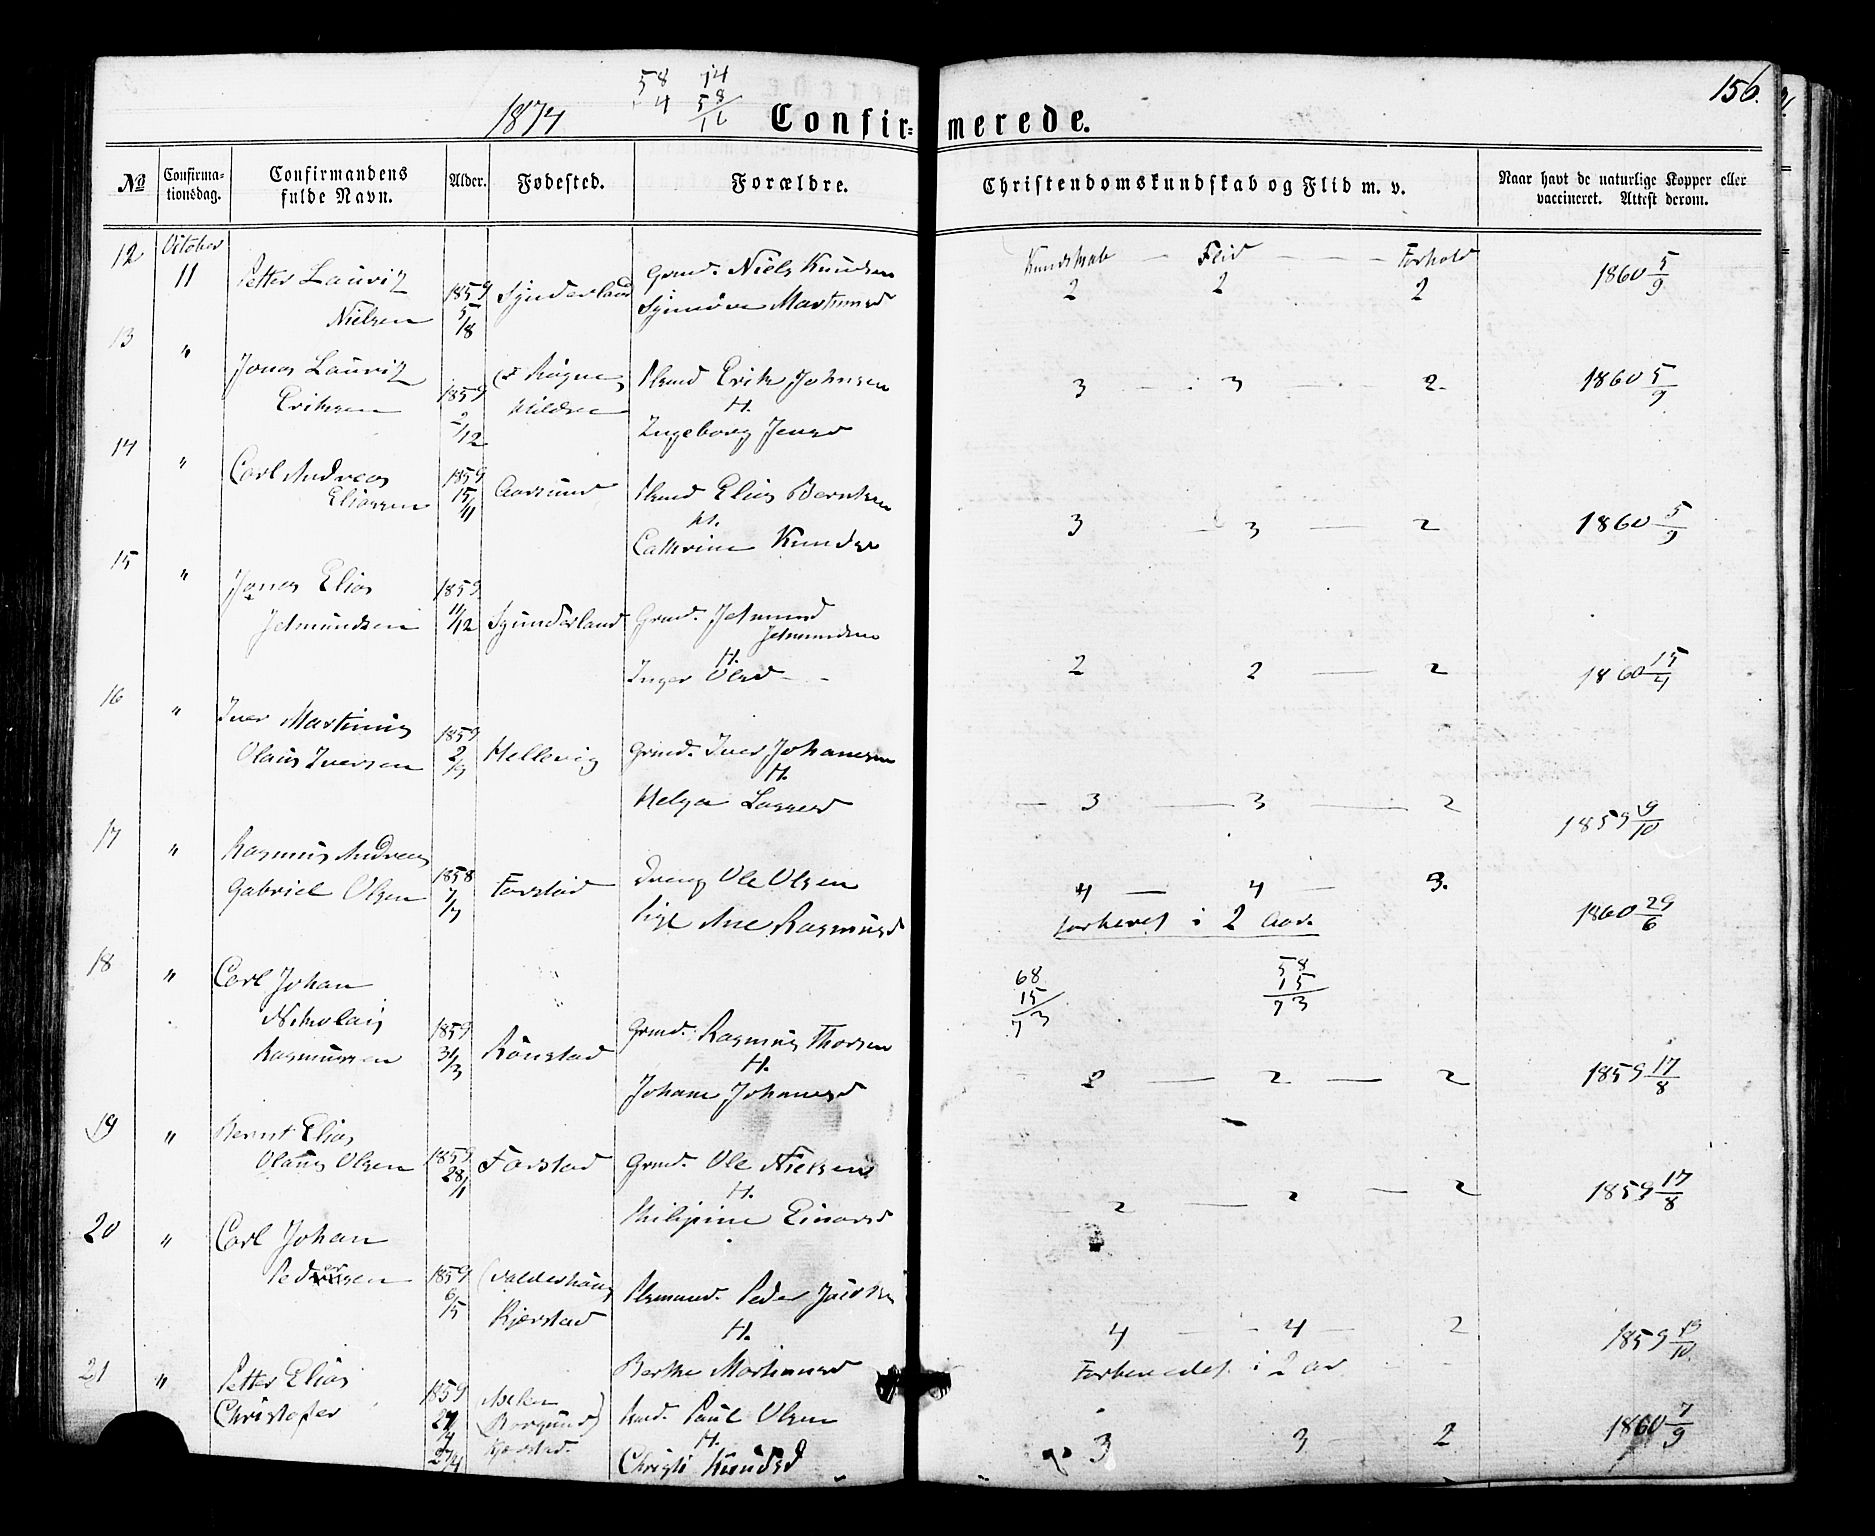 58 14
4 58
16
156.
1874
Confir= merede.
No
Confirma-
tionsdag.
Confirmandens
fulde Navn.
Alder.
Fødested.
Forældre.
Christendomskundskab og Flid m. v.
Naar havt de naturlige Kopper eller
vaccineret. Attest derom.
12 October Kundskab — Flid — Forhold
11 Petter Lauritz Grmd. Niels Knudsen
Nielsen 1859 5/8 Synderland Martinusd 2 2 2 1860 5/9
13 " Jonas Lauritz Erik Johnsen
Eriksen 1859 2/12 H. 3 3 2 1860 5/9
Ingeborg Jensd
14 " Carl Andreas 1859 Elias Berntsen
Eliassen 15/11 Aarsund H. 3 3 2 1860 5/9
Cathrine Knudsd
15 " Jonas Elias 1859
Jetmundsen 11/12 Synderland Grmd. Jetmund
Jetmundsen
H.
Inger Olsd 2 2 2 1860 15/4
16 " Iver Martinus 1859
Olaus Iversen 2/9 Hellevig Grmd. Iver Johansen
H.
Helga Lassesd 3 3 2 1859 9/10
17 " Rasmus Andreas 1858
Gabriel Olsen 7/7 Farstad Dreng Ole Olsen 4 — 4 — 3.
Pige Ane Rasmusd i 2 Aar. 1860 29/6
18 " Carl Johan 68 58
15 15
73 73
Nikolai 1859
Rasmussen 31/3 Rønstad Grmd. Rasmus Thorsen
H.
Johane Johannesd 2 — 2 — 2 1859 17/8
19 " Bernt Elias 1859
Olaus Olsen 28/1 Farstad Grmd. Ole Nielsen
H.
Philipine Einarsd 2 — 2 — 2 1859 17/8
20 " Carl Johan
1859 6/5 Kjerstad Peder
H.
Berthe Martinusd 4 4 2 1859
i 2 aar
21 " Petter Elias 1859
Christofer 27/4 (Borgund) Paul Olsen
27/4 Kjerstad. H.
Knudsd 3 3 2 1860 7/9